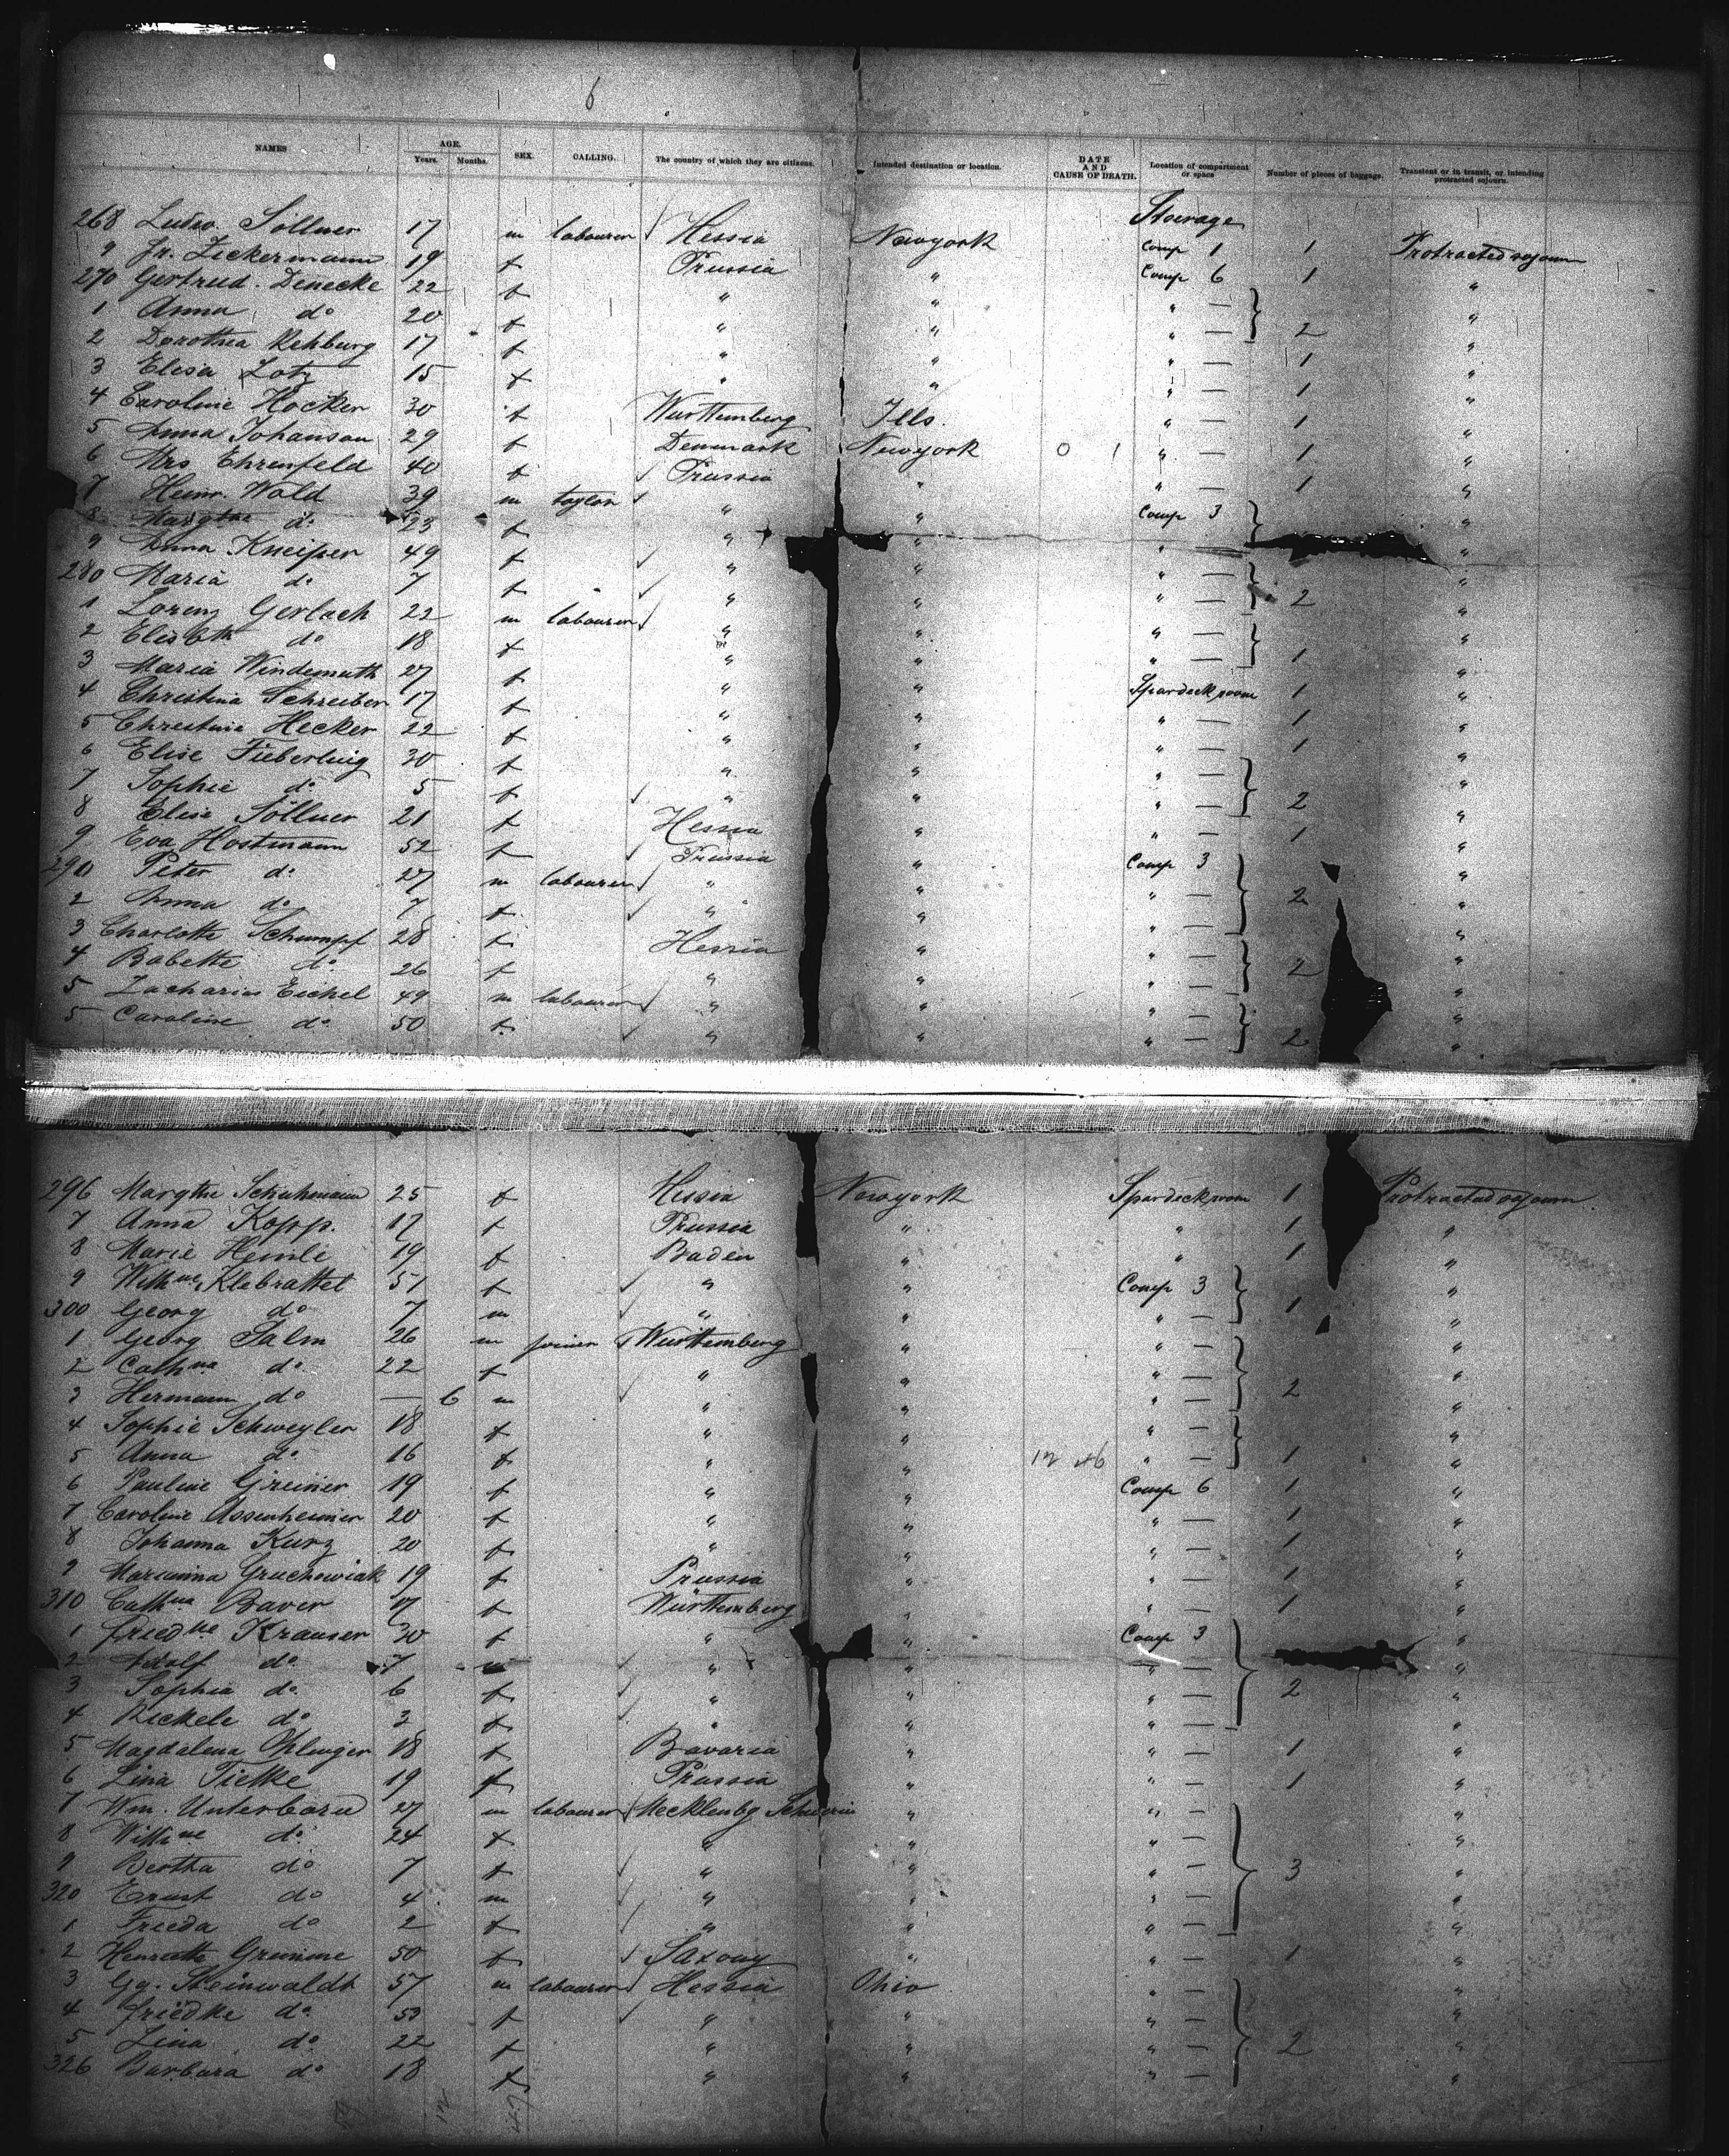 6
NAMES AGE. Years. Months. SEX. CALLING. The country of which they are citizens. Intended destination or location. DATE AND CAUSE OF DEATH. Location of compartment or space Number of pieces of baggage. Transient or in transit, or intending protracted sojourn.
Steerage
268 Ludw. Söllner 17 m labourer Hessia Newyork Comp 1 1 Protracted sojourn
9 Fr. Zickermann 19 f Prussia " Comp 6 1 "
270 Gertrud. Denecke 22 f " " " — "
1 Anna do 20 f " " " — 2 "
2 Dorothea Rehburg 17 f " " " — 1 "
3 Elisa Lotz 15 f " " " — 1 "
4 Caroline Hocker 30 f Württemberg Ills. " — 1 "
5 Anna Johanson 29 f Denmark Newyork 0 1 " — 1 "
6 Mrs Ehrenfeld 40 f Prussia " " — 1 "
7 Heinr. Wald 39 m taylor " " Comp 3 "
8 Margthe do 23 f " " " — "
9 Anna Kneiper 49 f " " " — "
280 Maria do 7 f " " " — 2 "
1 Lorenz Gerlach 22 m labourer " " " — "
2 Elisbth do 18 f " " " — 1 "
3 Maria Windemuth 27 f " " Spardeck room 1 "
4 Christina Schreiber 17 f " " " — 1 "
5 Christine Hecker 22 f " " " — 1 "
6 Elise Fieberling 30 f " " " — "
7 Sophie do 5 f " " " — 2 "
8 Elise Söllner 21 f Hessia " " — 1 "
9 Eva Hostmann 52 f Prussia " Comp 3 "
290 Peter do 27 m labourer " " " — 2 "
2 Anna do 7 f " " " — "
3 Charlotte Schumpf 28 f Hessia " " — "
4 Babette do 26 f " " " — 2 "
5 Zacharias Eichel 49 m labourer " " " — "
5 Caroline do 50 f " " " — 2 "
296 Margthe Schuhmann 25 f Hessia Newyork Spardeck room 1 Protracted sojourn
7 Anna Kopp. 17 f Prussia " " 1 "
8 Marie Hemle 19 f Baden " " 1 "
9 Wilhne Klebrattel 51 f " " Comp 3 "
300 Georg do 7 m " " " — 1 "
1 Georg Salm 26 m joiner Württemberg " " — "
2 Cathna do 22 f " " " — "
3 Hermann do — 6 m " " " — 2 "
4 Sophie Schweyler 18 f " " " — "
5 Anna do 16 f " " " — 1 "
6 Pauline Greiner 19 f " " Comp 6 1 "
7 Caroline Assenheimer 20 f " " " — 1 "
8 Johanna Kurz 20 f " " " — 1 "
9 Marianna Gruchowiak 19 f Prussia " " — 1 "
310 Cathna Baver 17 f Württemberg " " — 1 "
1 Friedke Krauser 30 f " " Comp 3 "
2 Adolf do 7 m " " " — "
3 Sophia do 6 f " " " — 2 "
4 Rickele do 3 f " " " — "
5 Magdalena Ohlinger 18 f Bavaria " " — 1 "
6 Lina Tielke 19 f Prussia " " — 1 "
7 Wm. Unterborn 27 m labourer Mecklenbg Schwerin " " — "
8 Wilhne do 24 f " " " — "
9 Bertha do 7 f " " " — 3 "
320 Ernst do 4 m " " " — "
1 Frieda do 2 f " " " — "
2 Henriette Grimme 50 f Saxony " " — 1 "
3 Gg. Steinwaldt 57 m labourer Hessia Ohio " — "
4 Friedke do 53 f " " " — "
5 Lina do 22 f " " " — 2 "
326 Barbara do 18 f " " " — "